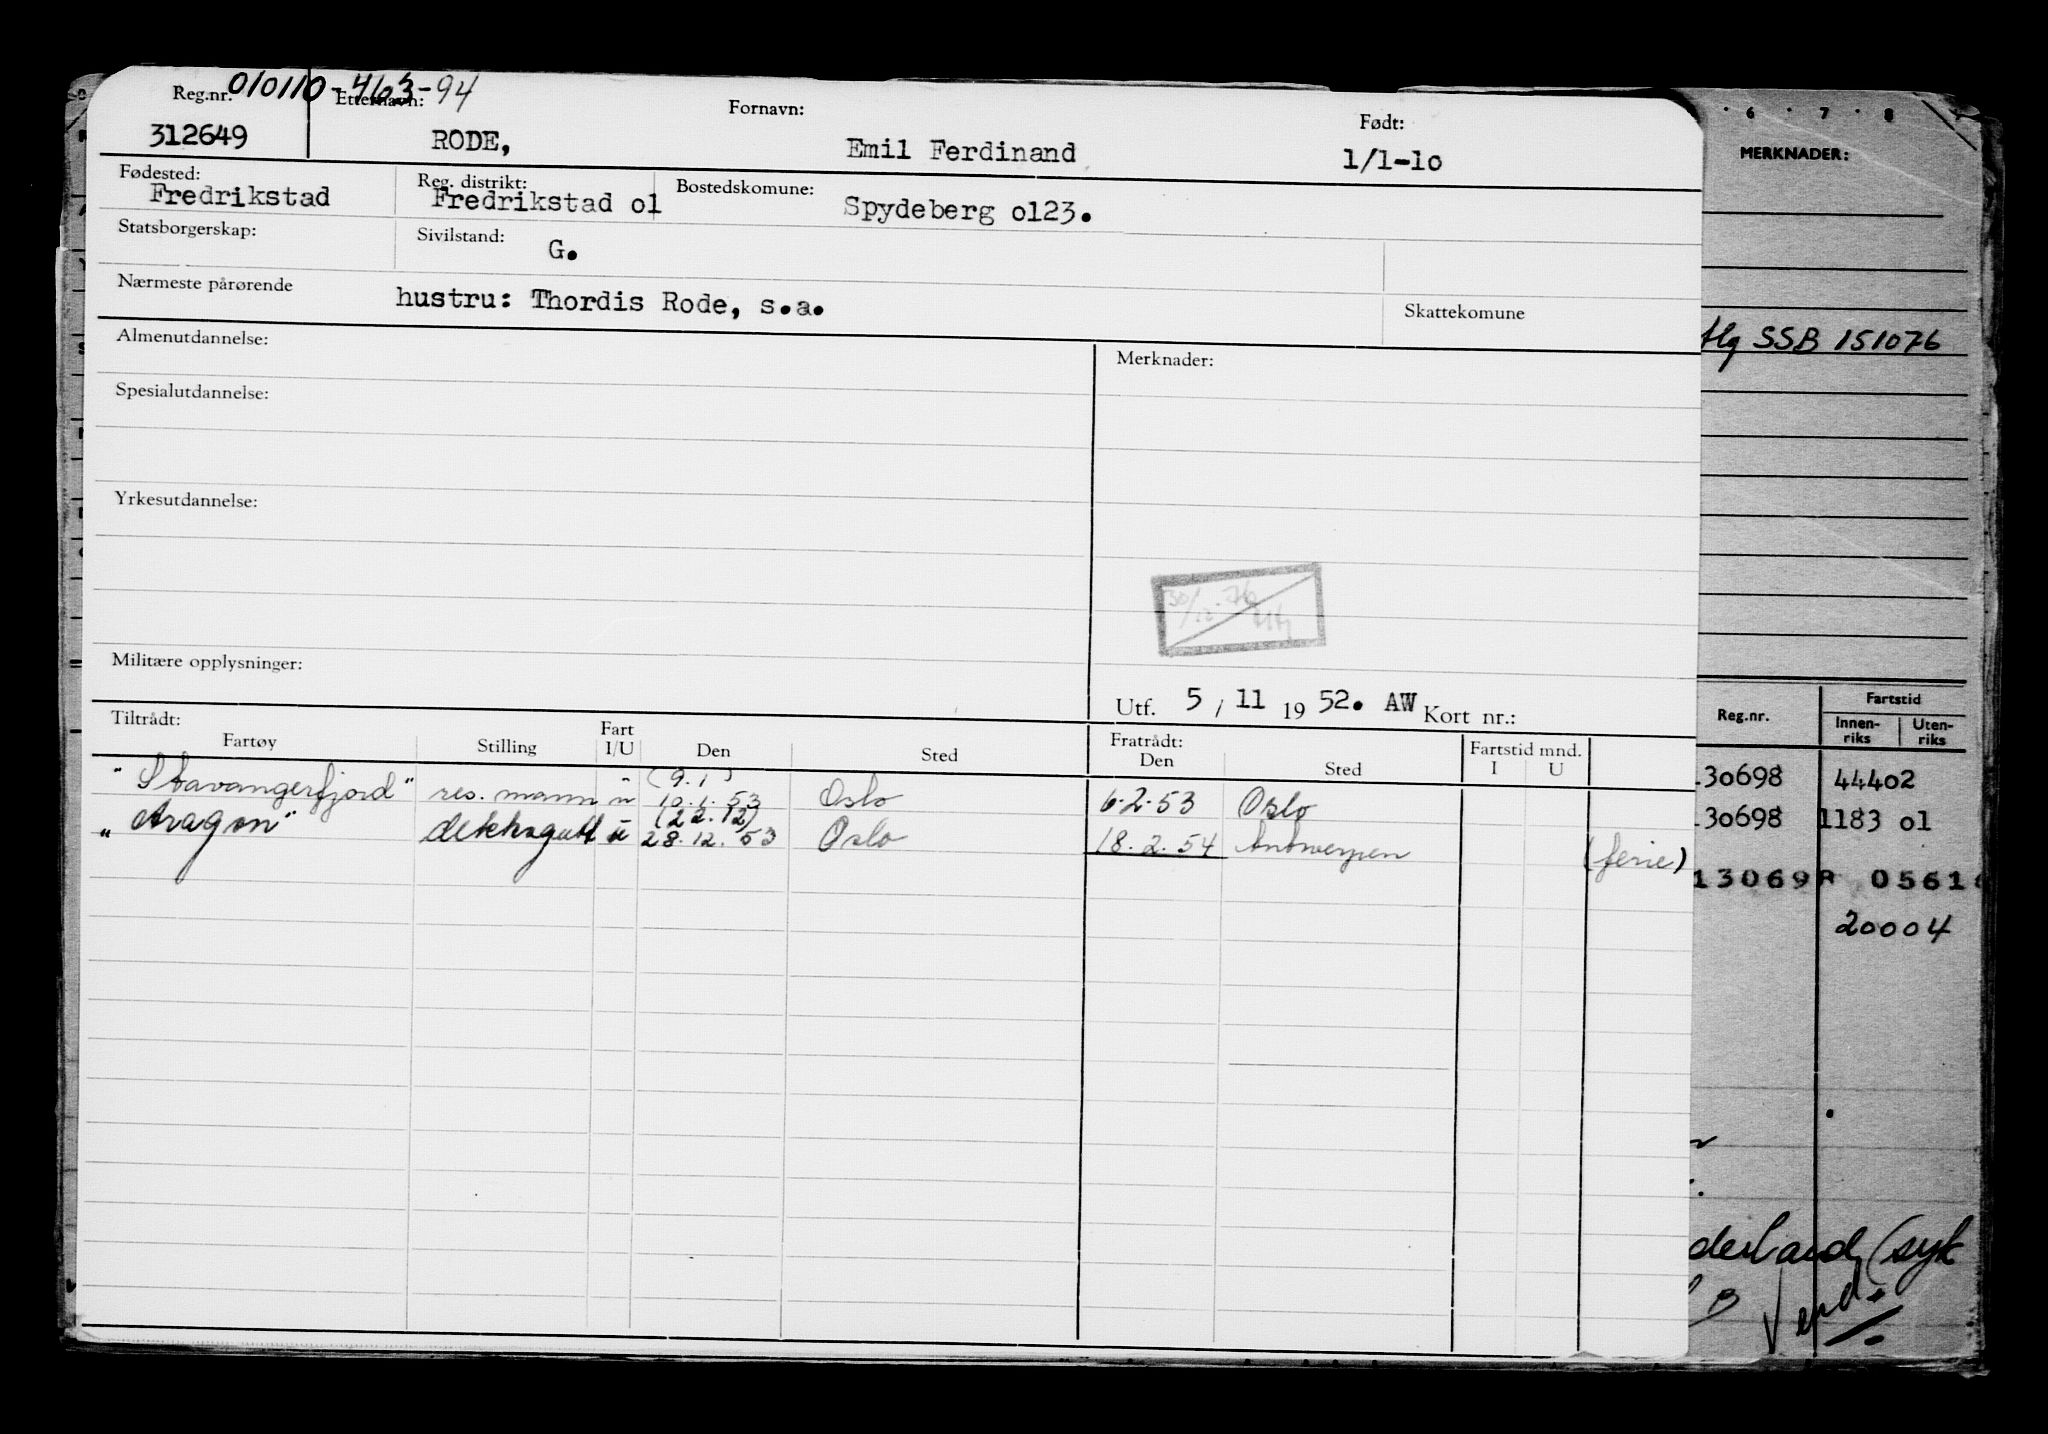 010110-463-94
Reg.nr. Etternavn: Fornavn: Født:
312649 RODE, Emil Ferdinand 1/1-1o
Fødested: Reg. distrikt: Bostedskomune:
Fredrikstad Fredrikstad o1 Spydeberg o123.
Statsborgerskap: Sivilstand: G.
Nærmeste pårørende hustru: Thordis Rode, s.a. Skattekomune
Almenutdannelse: Merknader:
Spesialutdannelse:
Yrkesutdannelse:
Militære opplysninger:
Utf. 5 / 11 19 52. AW Kort nr.:
Tiltrådt: Fratrådt:
Fartøy Stilling Fart I/U Den Sted Den Sted Fartstid mnd. I U
(9.1)
"Stavangerfjord" res. mann u 10.1.53 Oslo 6.2.53 Oslo
(22.12)
"Aragon" dekksgutt u 28.12.53 Oslo 18.2.54 Antwerpen (ferie)
6 7 8
MERKNADER:
SSB 151076
Reg.nr. Fartstid
Innen-riks Uten-riks
130698 44402
130698 1183 o1
130698 0561
20004
derland (syk
B
Vend.